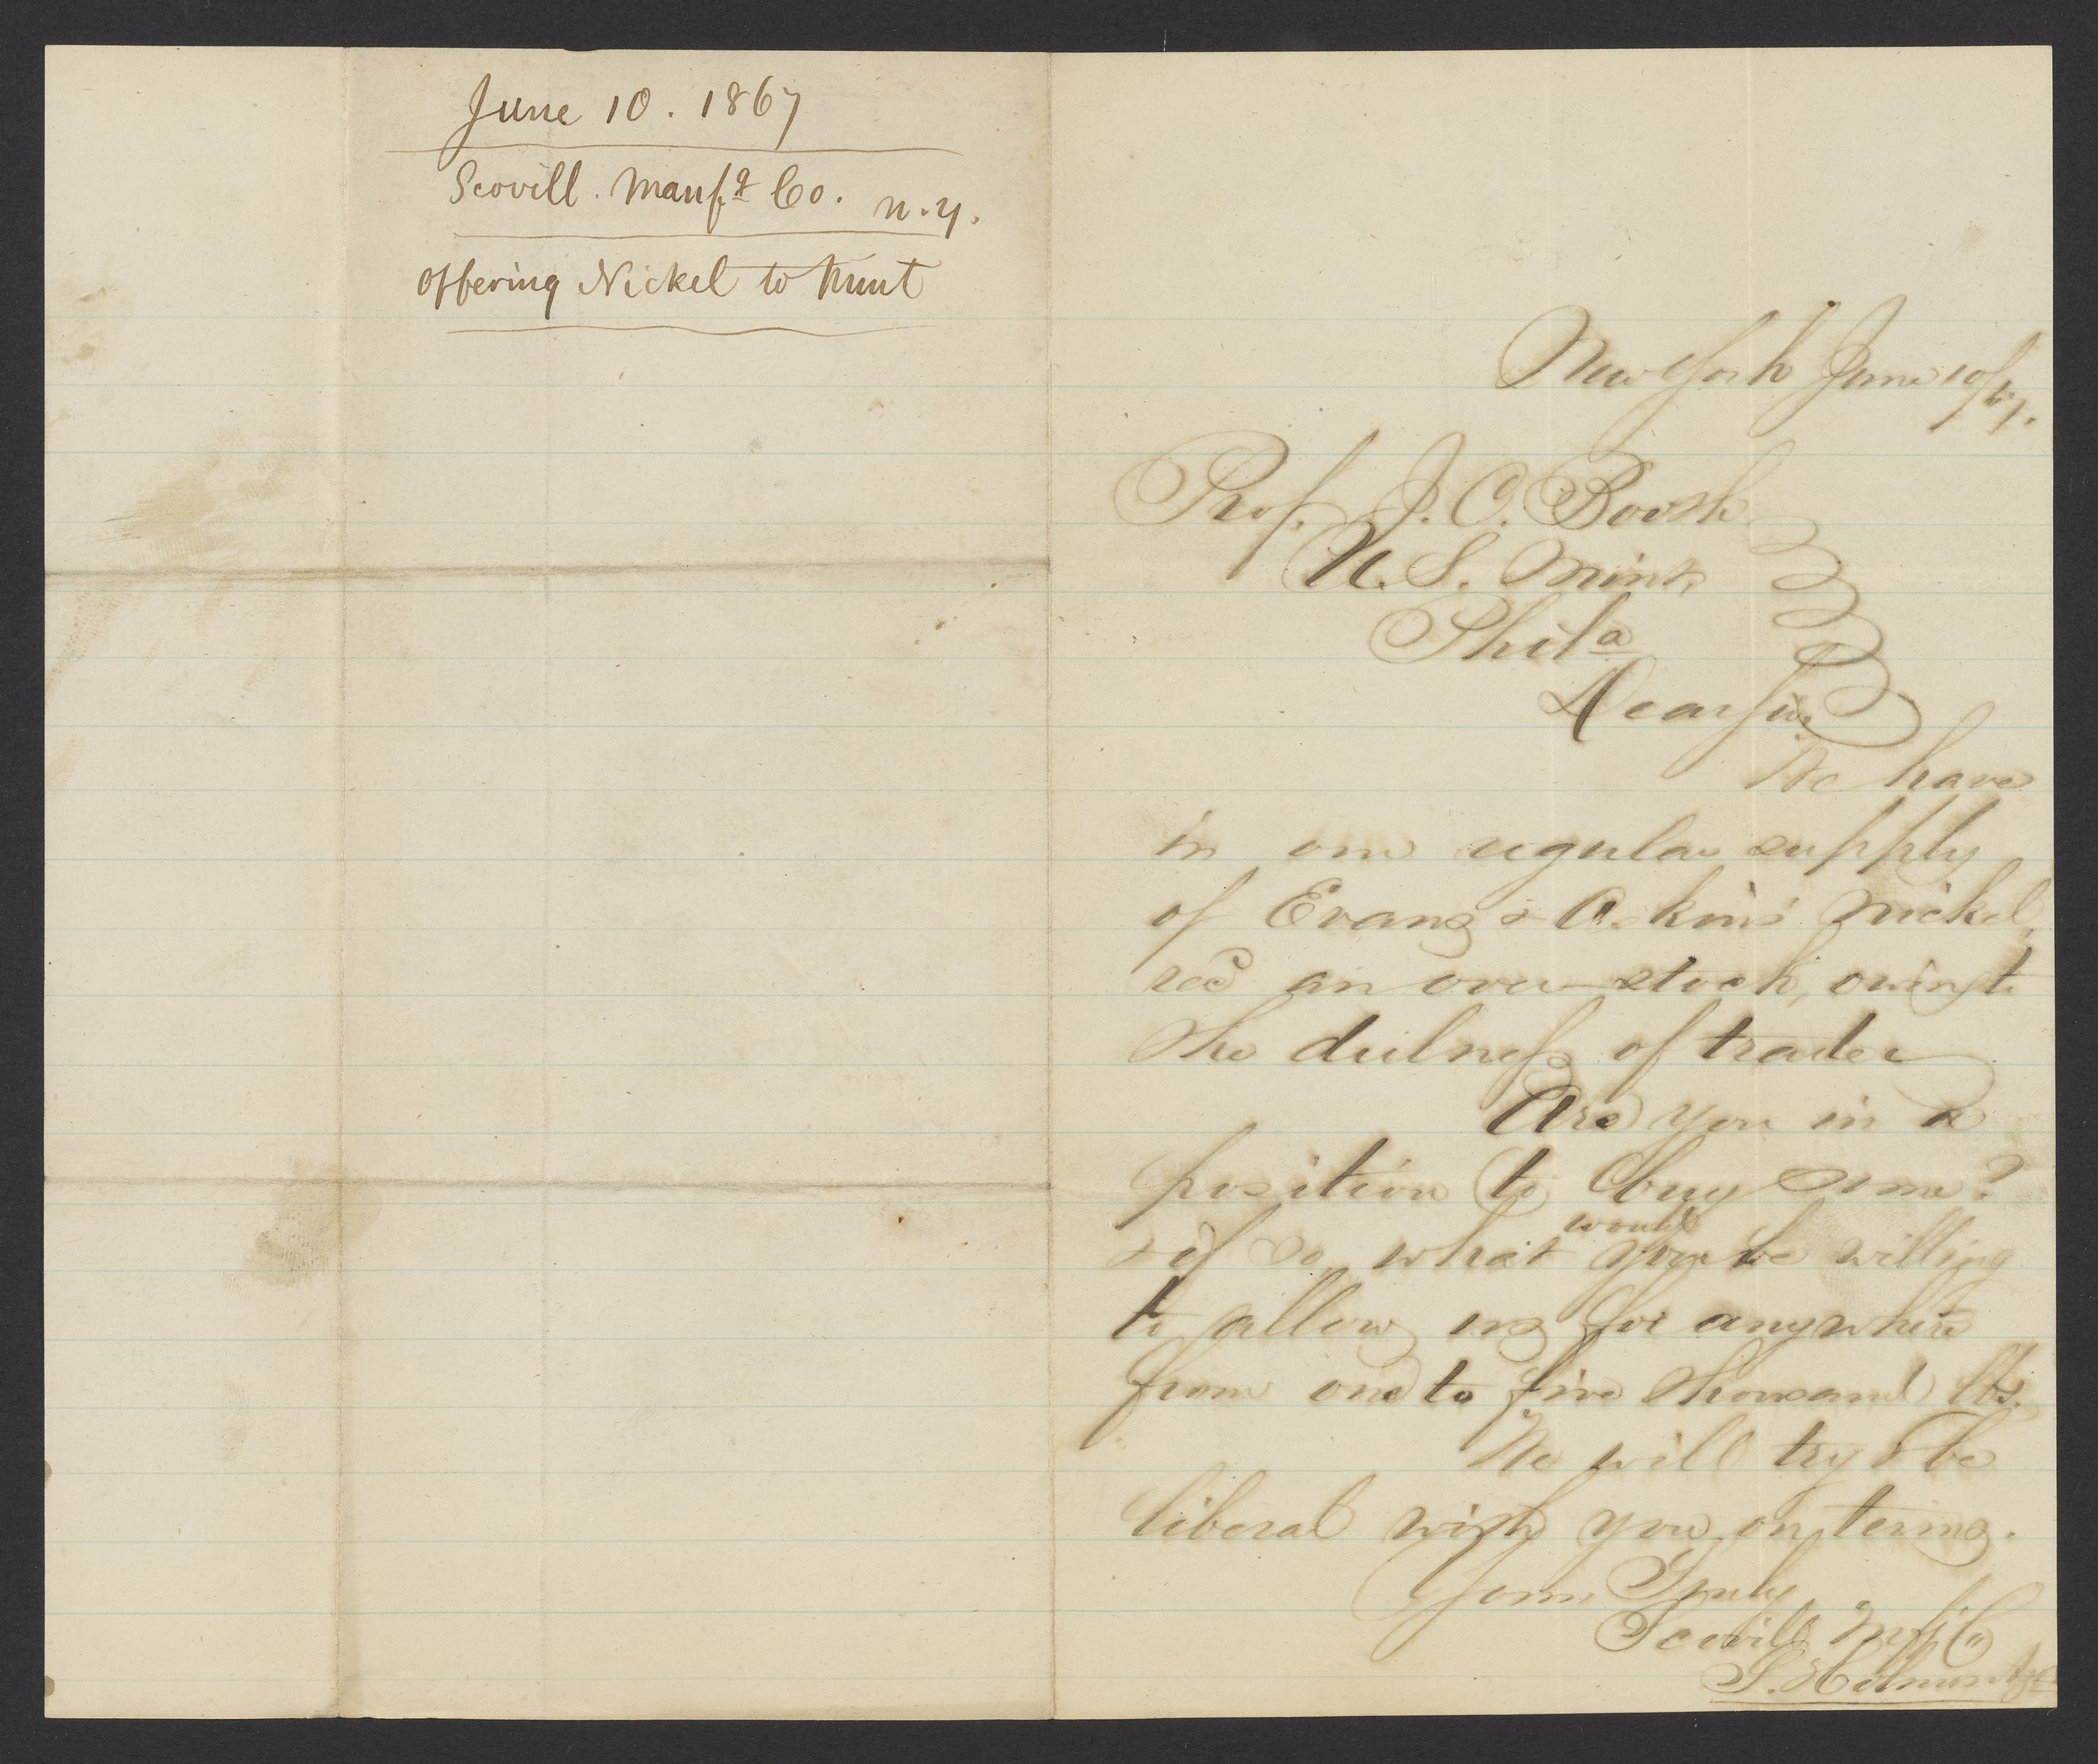 June 10. 1867
Scovill. Manfg Co. N.Y.
Offering Nickel to Mint
New York June 10/67.
Prof. J. C. Booth
U. S. Mint,
Phila
Dear Sir,
We have
in our regular supply
of Evans & Askins' nickel,
recd an over-stock, owing to
the dulness of trade.
Are you in a
position to buy some?
& if so, what would you be willing
to allow us for anywhere
from one to five thousand lbs.
We will try & be
liberal with you, on terms.
Yours Truly
Scovill Mfg Co
S. Holmes